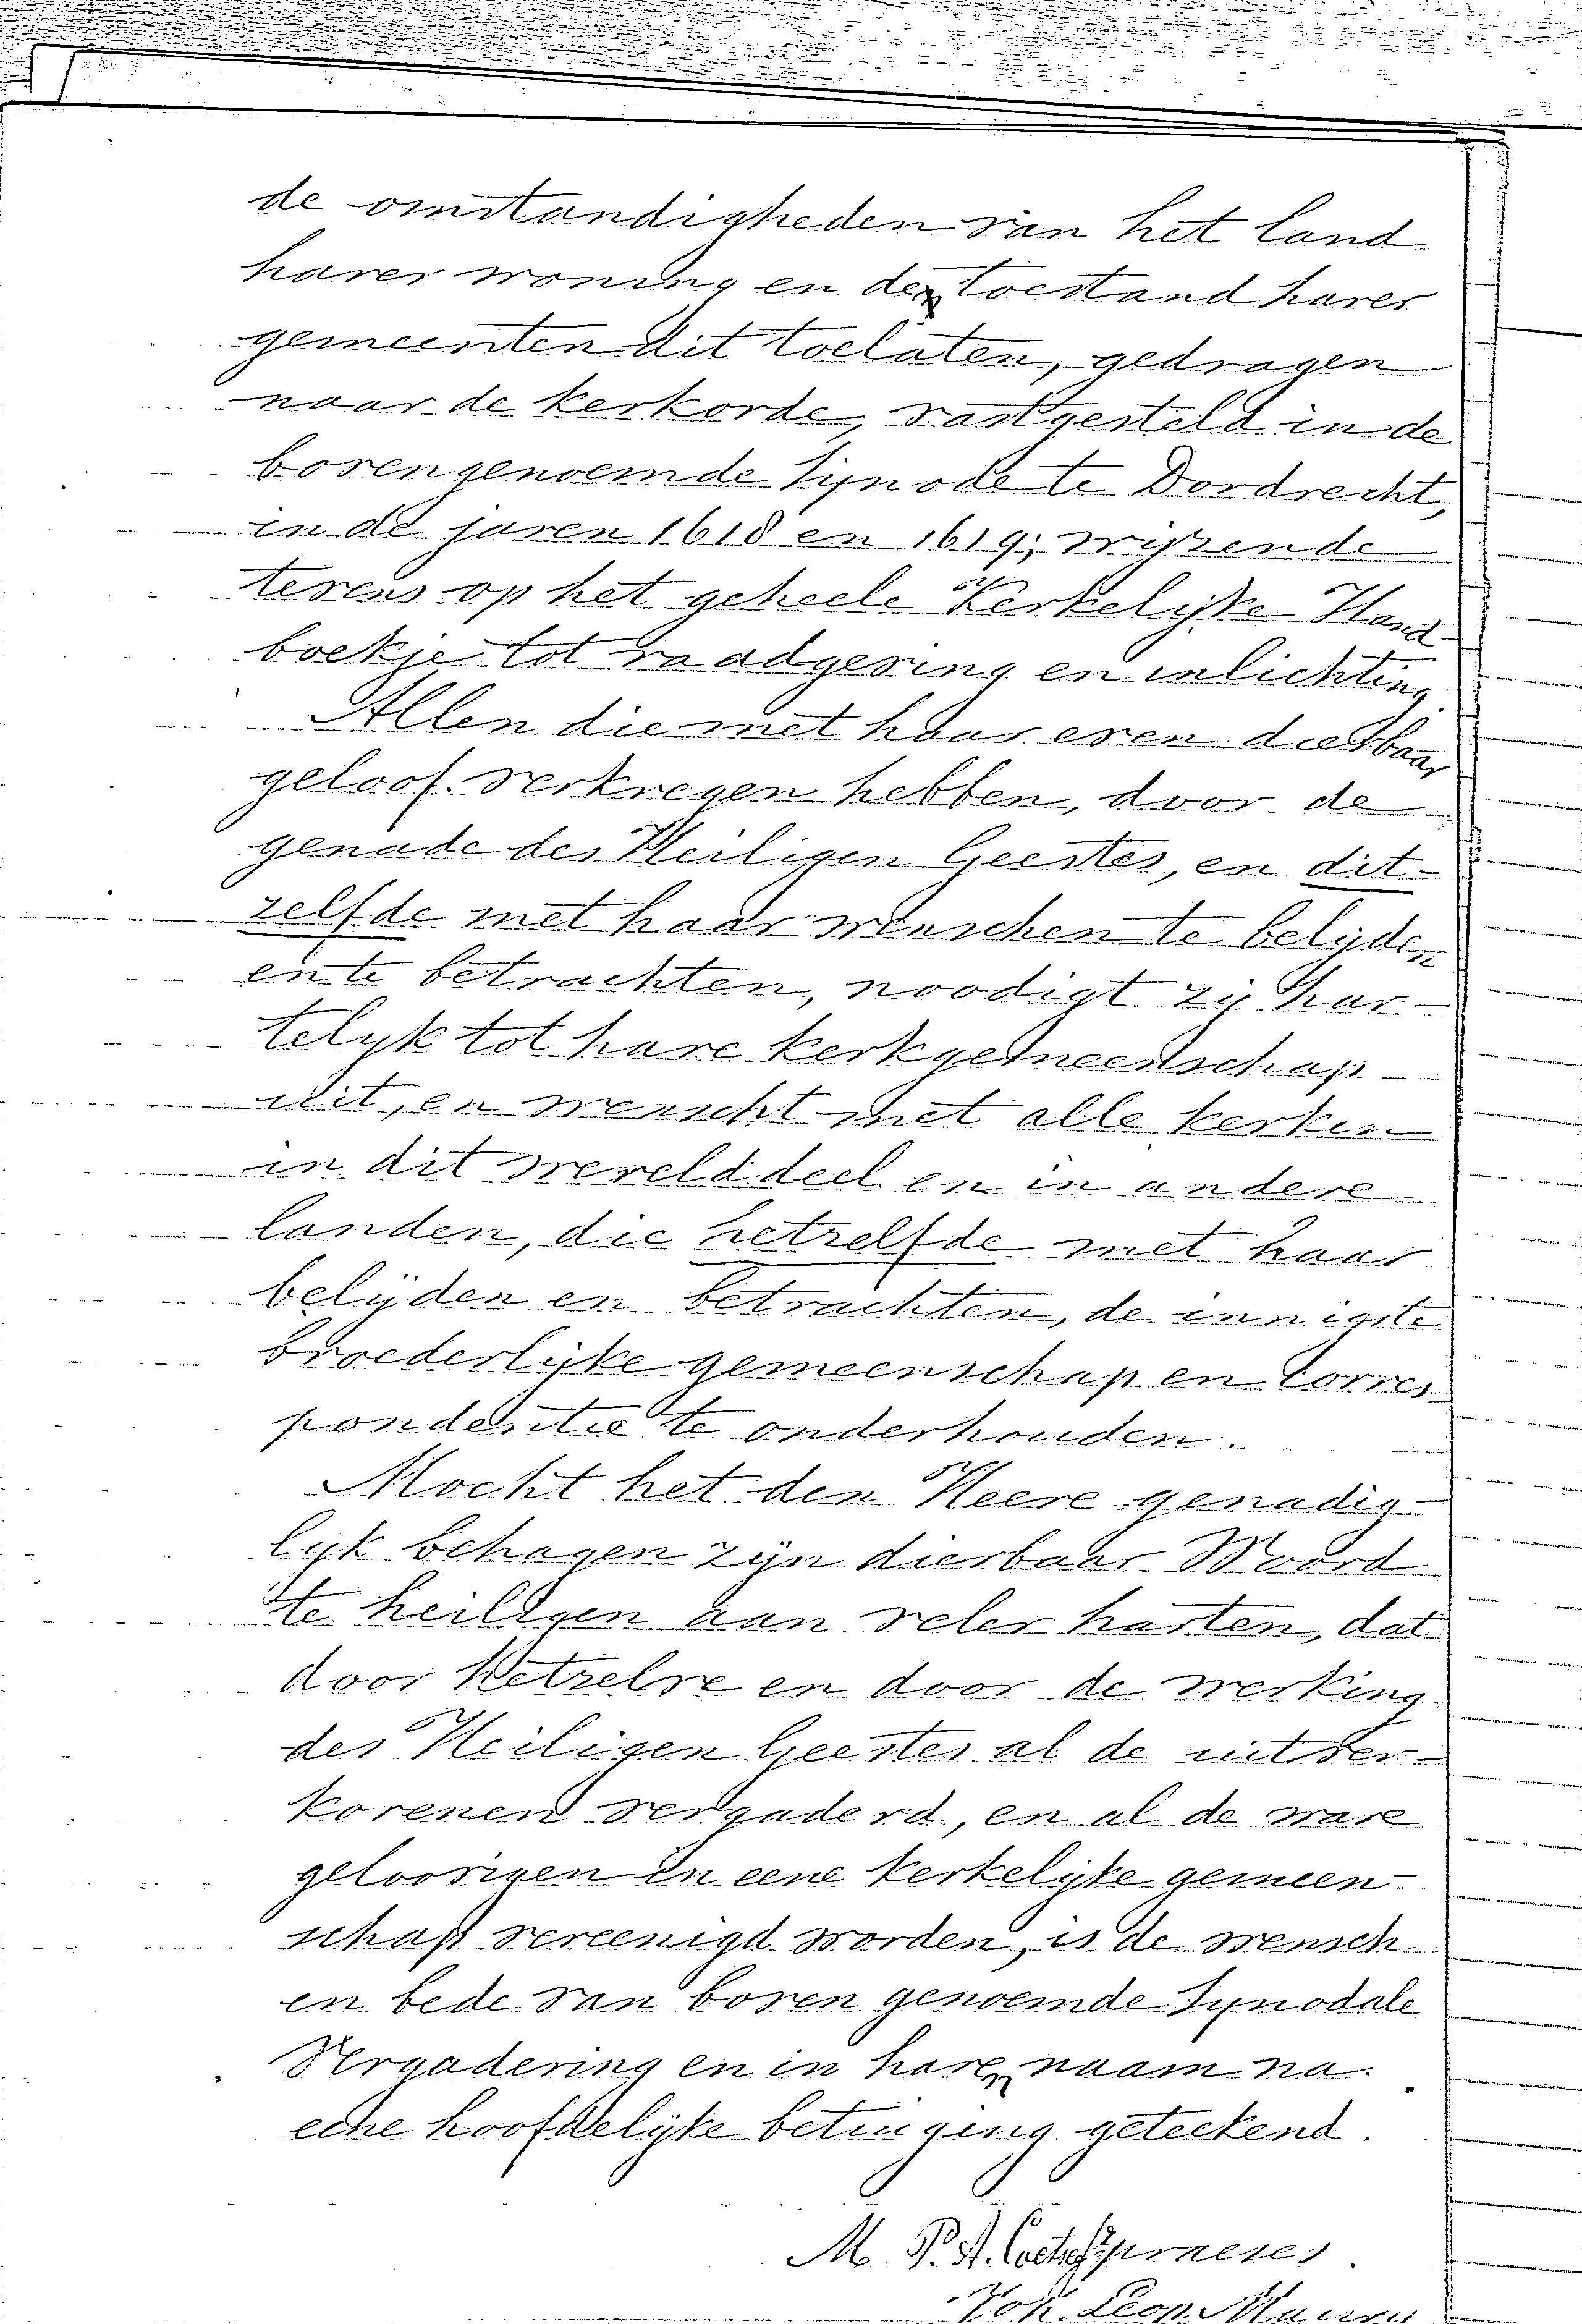 de omstandigheden van het land
harer woning en den toestand harer
gemeenten dit toelaten, gedragen
naar de kerkorde, vastgesteld in de
bovengenoemde Synode te Dordrecht,
in de jaren 1618 en 1619; wijzende
tevens op het geheele Kerkelijke Hand-
boekje tot raadgeving en inlichting.
Allen die met haar even dierbaar
geloof verkregen hebben, door de
genade des Heiligen Geestes, en dit-
zelfde met haar wenschen te belijden
en te betrachten, noodigt zij har-
telijk tot hare kerkgemeenschap
uit, en wenscht met alle kerken
in dit werelddeel en in andere
landen, die hetzelfde met haar
belijden en betrachten, de innigste
broederlijke gemeenschap en Corres-
pondentie te onderhouden.
Mocht het den Heere genadig-
lijk behagen zijn dierbaar Woord
te heiligen aan veler harten, dat
door hetzelve en door de werking
des Heiligen Geestes al de uitver-
korenen vergaderd, en al de ware
geloovigen in eene kerkelijke gemeen-
schap vereenigd worden, is de wensch
en bede van boven genoemde Synodale
Vergadering en in haren naam na
eene hoofdelijke betuiging geteekend.
M. P. A. Coetsee
Joh. Leop.